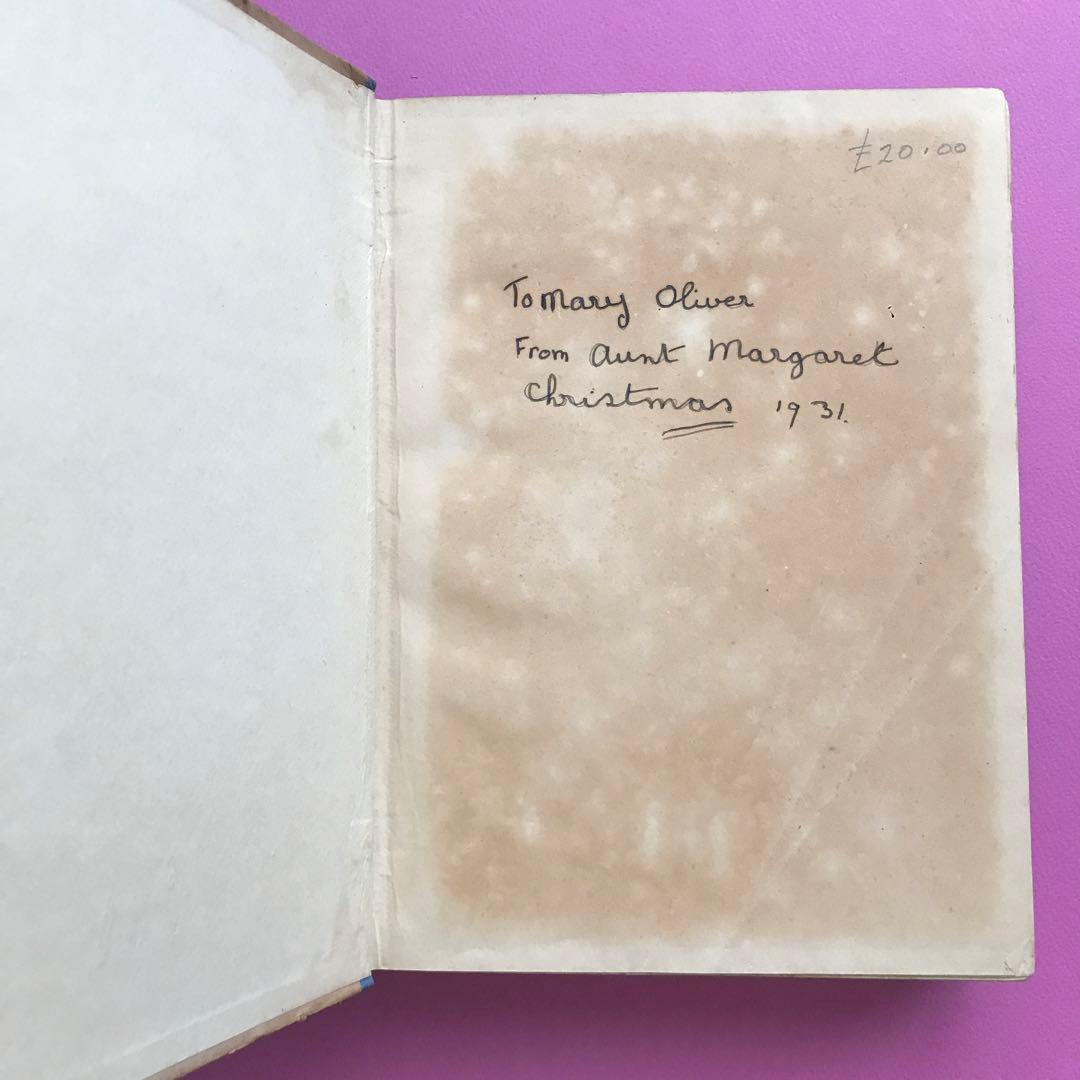 £20.00
To Mary Oliver
From Aunt Margaret
Christmas 1931.